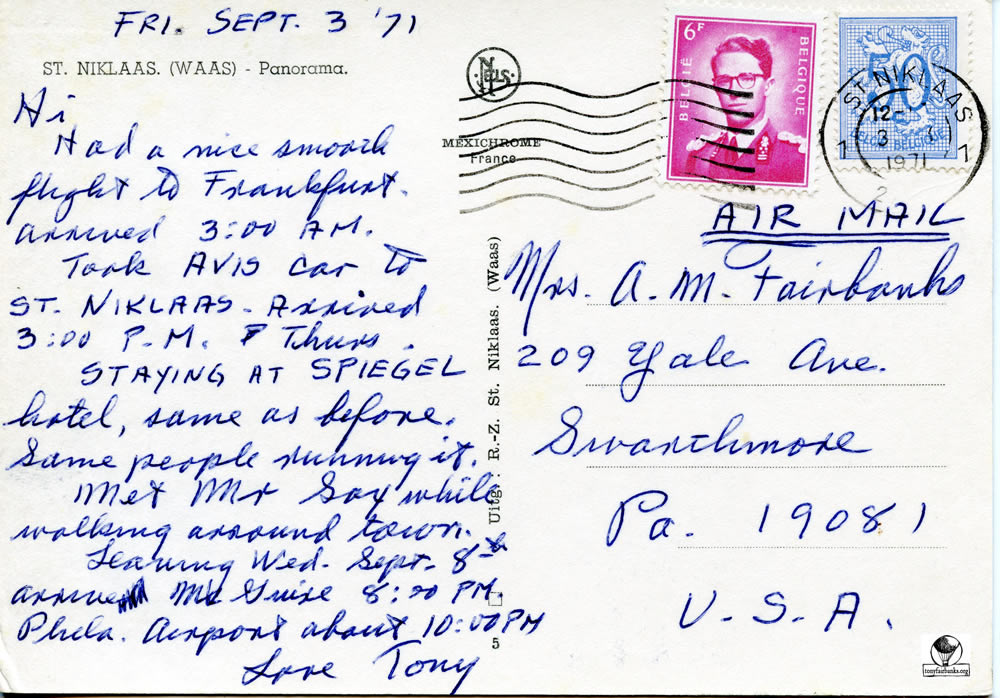 FRI. SEPT. 3 '71
ST. NIKLAAS. (WAAS) - Panorama.
Hi
Had a nice smooth
flight to Frankfurt.
arrived 3:00 AM.
Took AVIS car to
ST. NIKLAAS - Arrived
3:00 P.M. Thurs.
STAYING AT SPIEGEL
hotel, same as before.
Same people running it.
Met Mr Say while
walking arround town.
Leaving Wed. Sept. 8th
arrive Mc Guire 8:20 PM.
Phila. Airport about 10:00 PM
Love Tony
NELS
MEXICHROME
France
Uitg.: R.-Z. St. Niklaas. (Waas)
5
6F
BELGIË
BELGIQUE
50
BELGIE
ST NIKLAAS
12-
3
1971
1
1
AIR MAIL
Mrs. A. M. Fairbanks
209 Yale Ave.
Swarthmore
Pa. 19081
U.S.A.
tonyfairbanks.org